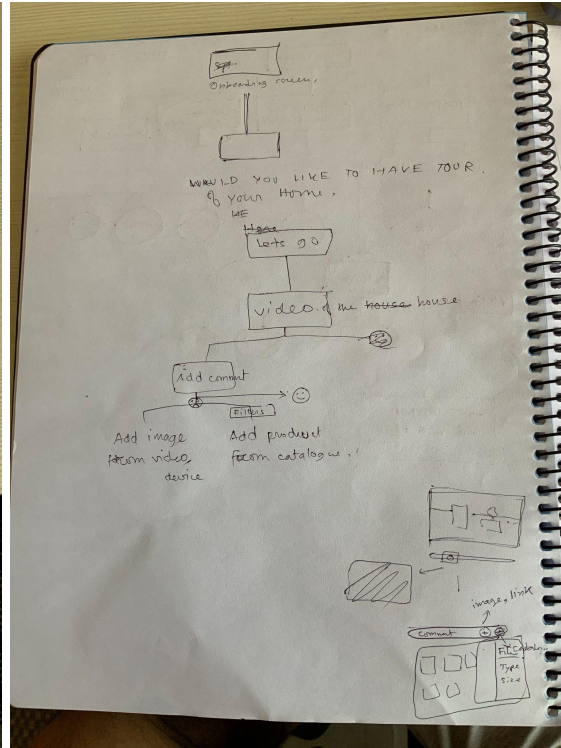 Onboarding screen,
WOULD YOU LIKE TO HAVE TOUR.
of your Home.
WE
Home
Lets go
video of the house house
Add comment
Filters
Add image
from video,
device
Add product
from catalogue.
image, link
comment
Catalo
Type
Size